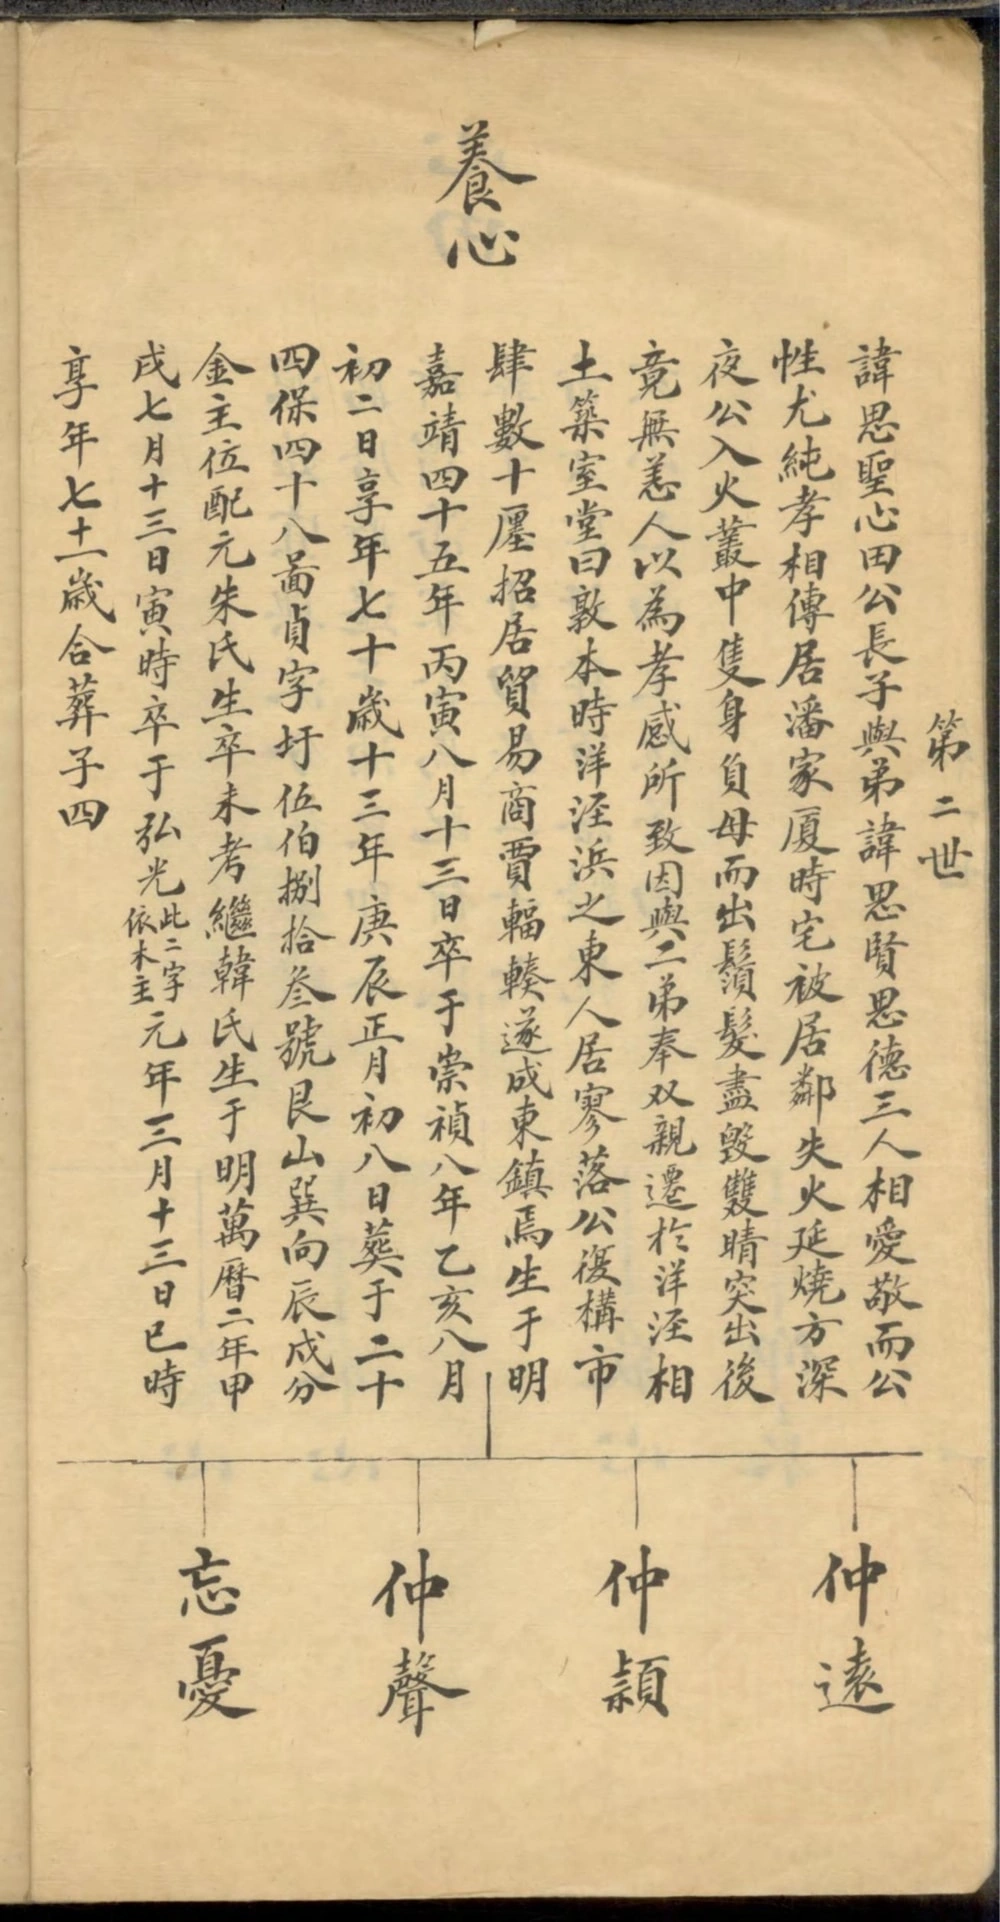 養心
第二世
諱思聖心田公長子與弟諱思賢思德三人相愛敬而公
性尤純孝相傳居潘家厦時宅被居鄰失火延燒方深
夜公入火叢中隻身負母而出鬚髮盡毀雙睛突出後
竟無恙人以為孝感所致因與二弟奉双親遷於洋涇相
土築室堂曰敦本時洋涇浜之東人居寥落公復構市
肆數十廛招居貿易商賈輻輳遂成東鎮焉生于明
嘉靖四十五年丙寅八月十三日卒于崇禎八年乙亥八月
初二日享年七十歲十三年庚辰正月初八日葬于二十
四保四十八啚貞字圩伍伯捌拾叁號艮山巽向辰戌分
金主位配元朱氏生卒未考繼韓氏生于明萬曆二年甲
戌七月十三日寅時卒于弘光此二字依木主元年三月十三日巳時
享年七十二歲合葬子四
仲遠
仲頴
仲聲
忘憂